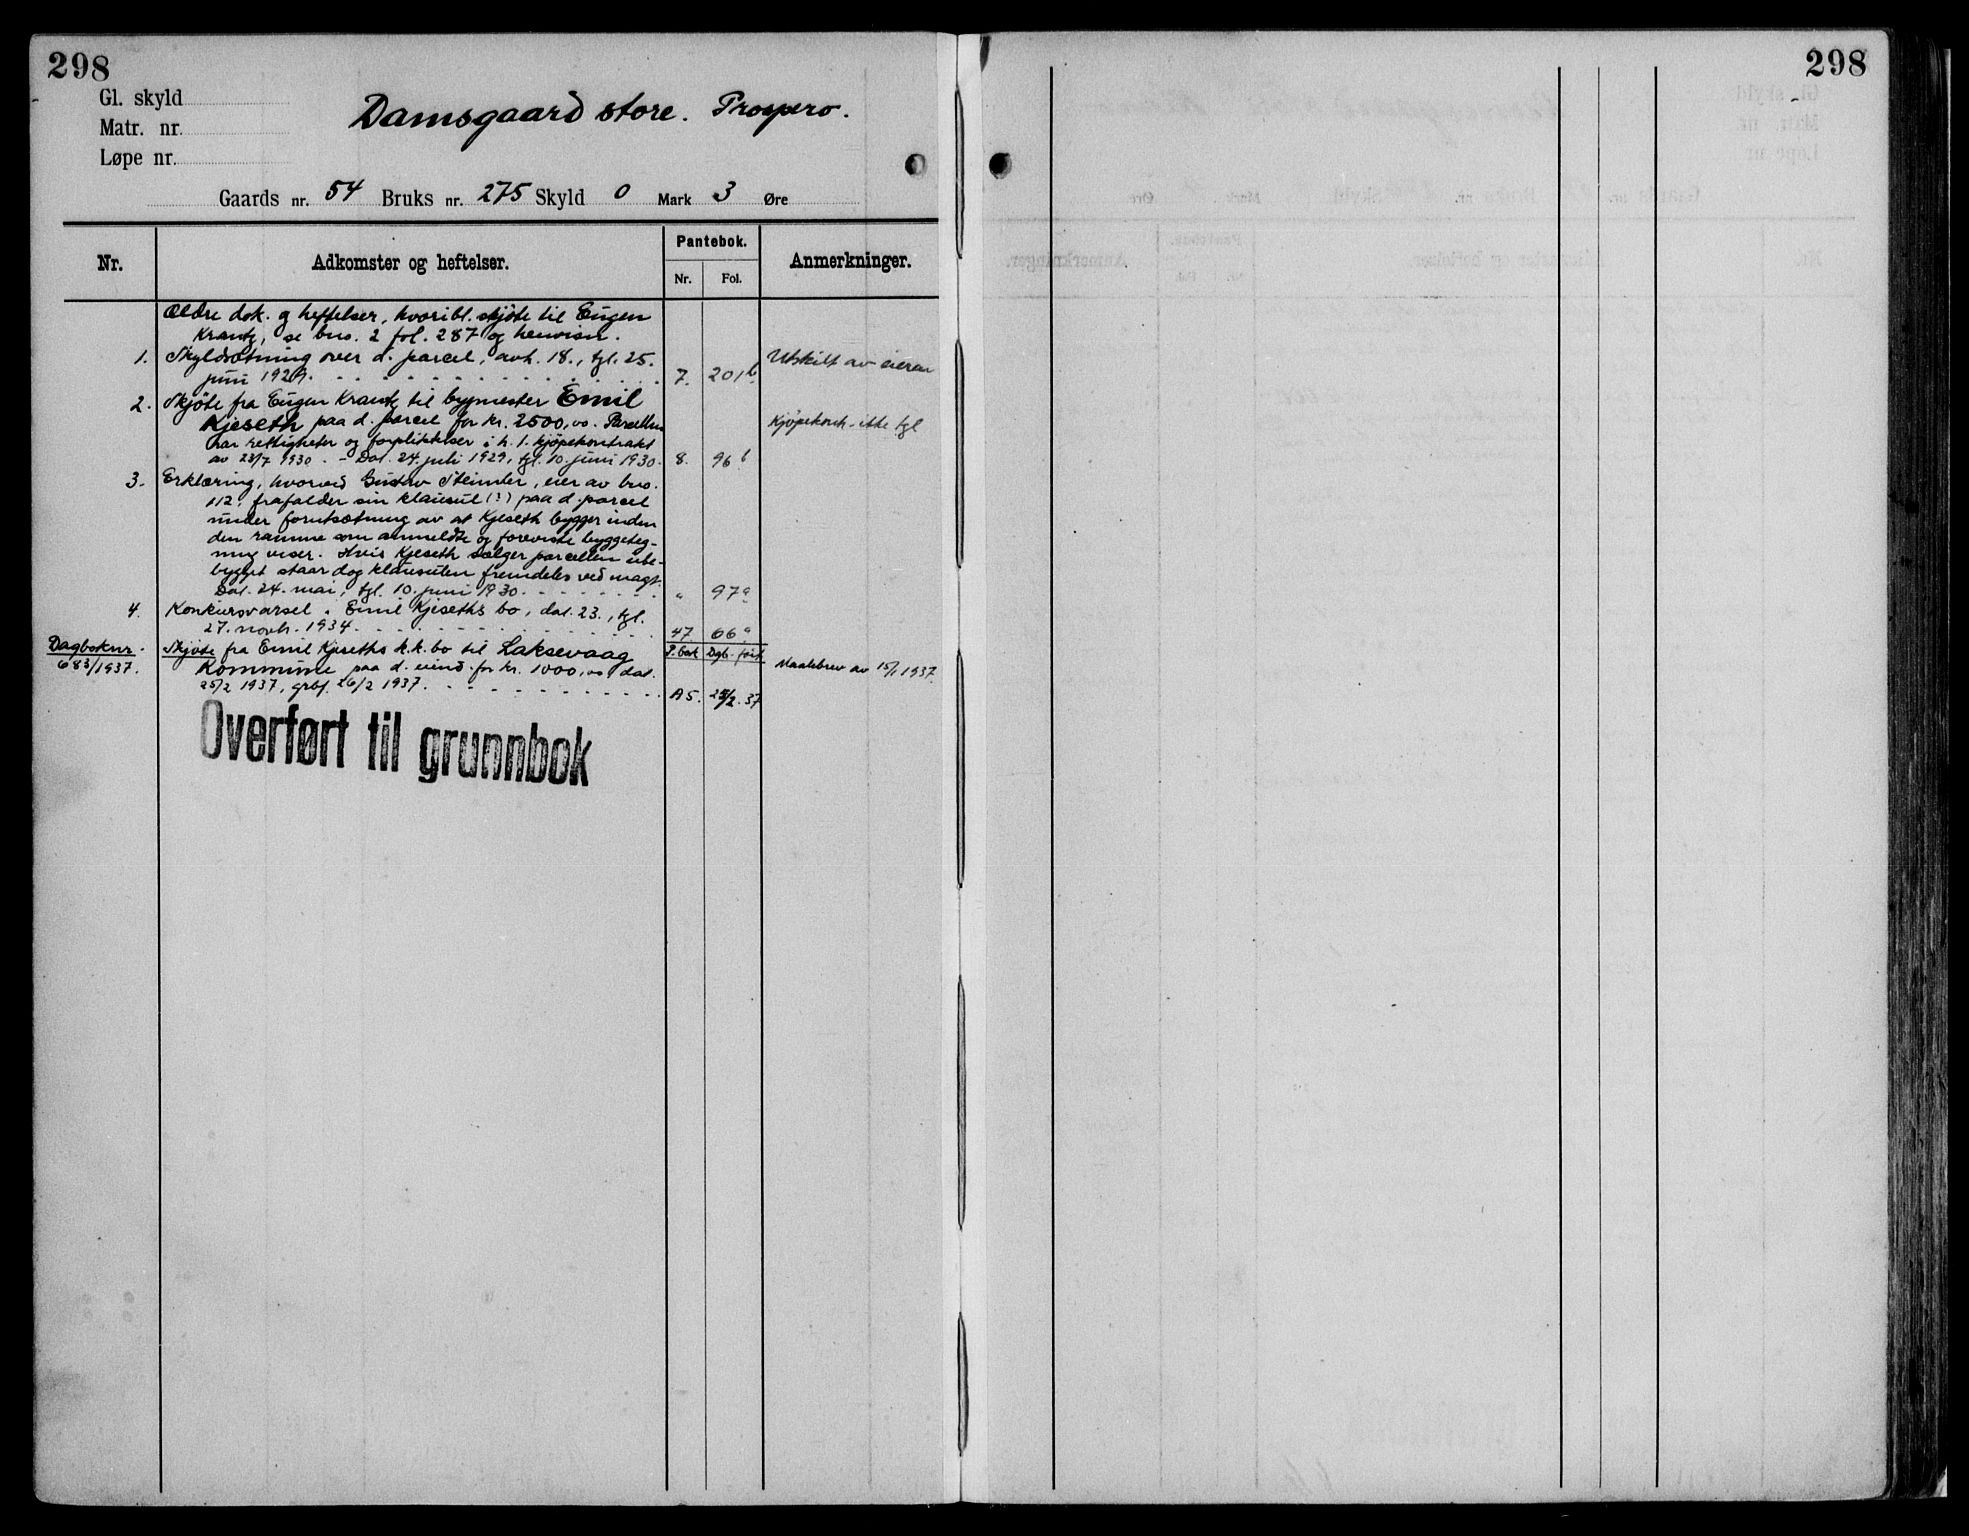 298
298
Gl. skyld
Matr. nr.
Løpe nr.
Damsgaard store. Prospero.
Gaards nr. 54 Bruks nr. 275 Skyld 0 Mark 3 Øre
Nr.
Adkomster og heftelser.
Pantebok.
Nr.
Fol.
Anmerkninger.
Ældre dok. og heftelser, hvoribl. skjøte til Eugen
Krantz, se bno. 2 fol. 287 og henvisn.
1. Skyldsætning over d. parcel, avh. 18., tgl. 25.
juni 1929. 7. 201b Utskilt av eieren
2. Skjøte fra Eugen Krantz til bygmester Emil
Kjeseth paa d. parcel for kr. 2500,00. Parcellen Kjøpekontr. ikke tgl
har rettigheter og forpliktelser i h. t. kjøpekontrakt
av 23/7 1930. - Dat. 24. juli 1929, tgl. 10. juni 1930. 8. 96b
3. Erklæring, hvorved Gustav Steimler, eier av bno.
112, frafalder sin klausul (?) paa d. parcel
under forutsætning av at Kjeseth bygger inden
den ramme som anmeldte og foreviste byggeteg-
ning viser. Hvis Kjeseth sælger parcellen ube-
bygget staar dog klausulen fremdeles ved magt.
Dat. 24. mai, tgl. 10. juni 1930. " 97a
4. Konkursvarsel i Emil Kjeseths bo, dat. 23., tgl.
27. novbr. 1934. 47. 66a
Dagboknr. Skjøte fra Emil Kjeseths k.k. bo til Laksevaag P.bok Dgb. ført
683/1937. Kommune paa d. eiend. for kr. 1000,00 dat. Maalebrev av 15/1 1937.
25/2 1937, grbf. 26/2 1937. A5. 25/2. 37
Overført til grunnbok